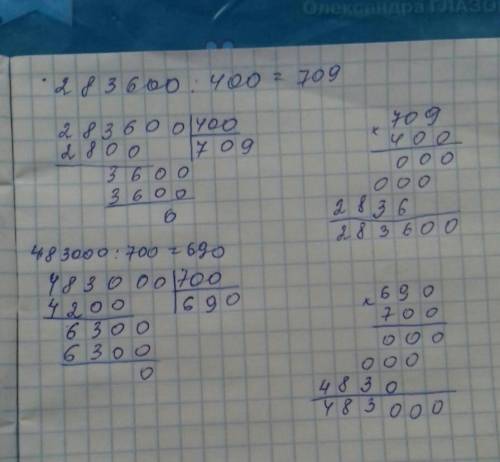 Олександра ГЛАЗО
283600 : 400 = 709
283600 | 400
2800 709
3600
3600
0
× 709
400
000
000
2836
283600
483000 : 700 = 690
483000 | 700
4200 690
6300
6300
0
× 690
700
000
000
4830
483000